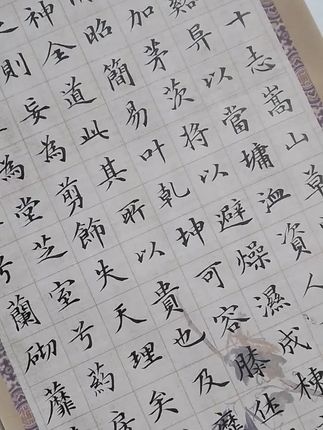 十志嵩山草
異以當墉洫資人
加茅茨將以避燥濕成棟
昭簡易叶乾坤可容膝休
神全道此其所以貴也及靡
則妄為剪飾失天理矣
為堂芝室兮藥房
兮蘭砌蘼